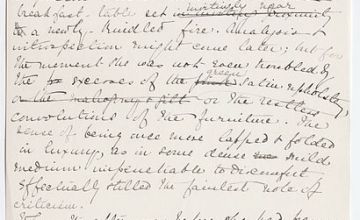 breakfast-table set invitingly near
to a newly-kindled fire. Analysis &
introspection might come later; but for
the moment she was not even troubled by
the excesses of the green satin upholstery
or the restless
convolutions of the furniture. The
sense of being once more lapped & folded
in luxury, as in some dense mild
medium impenetrable to discomfort
effectually stilled the faintest note of
criticism.